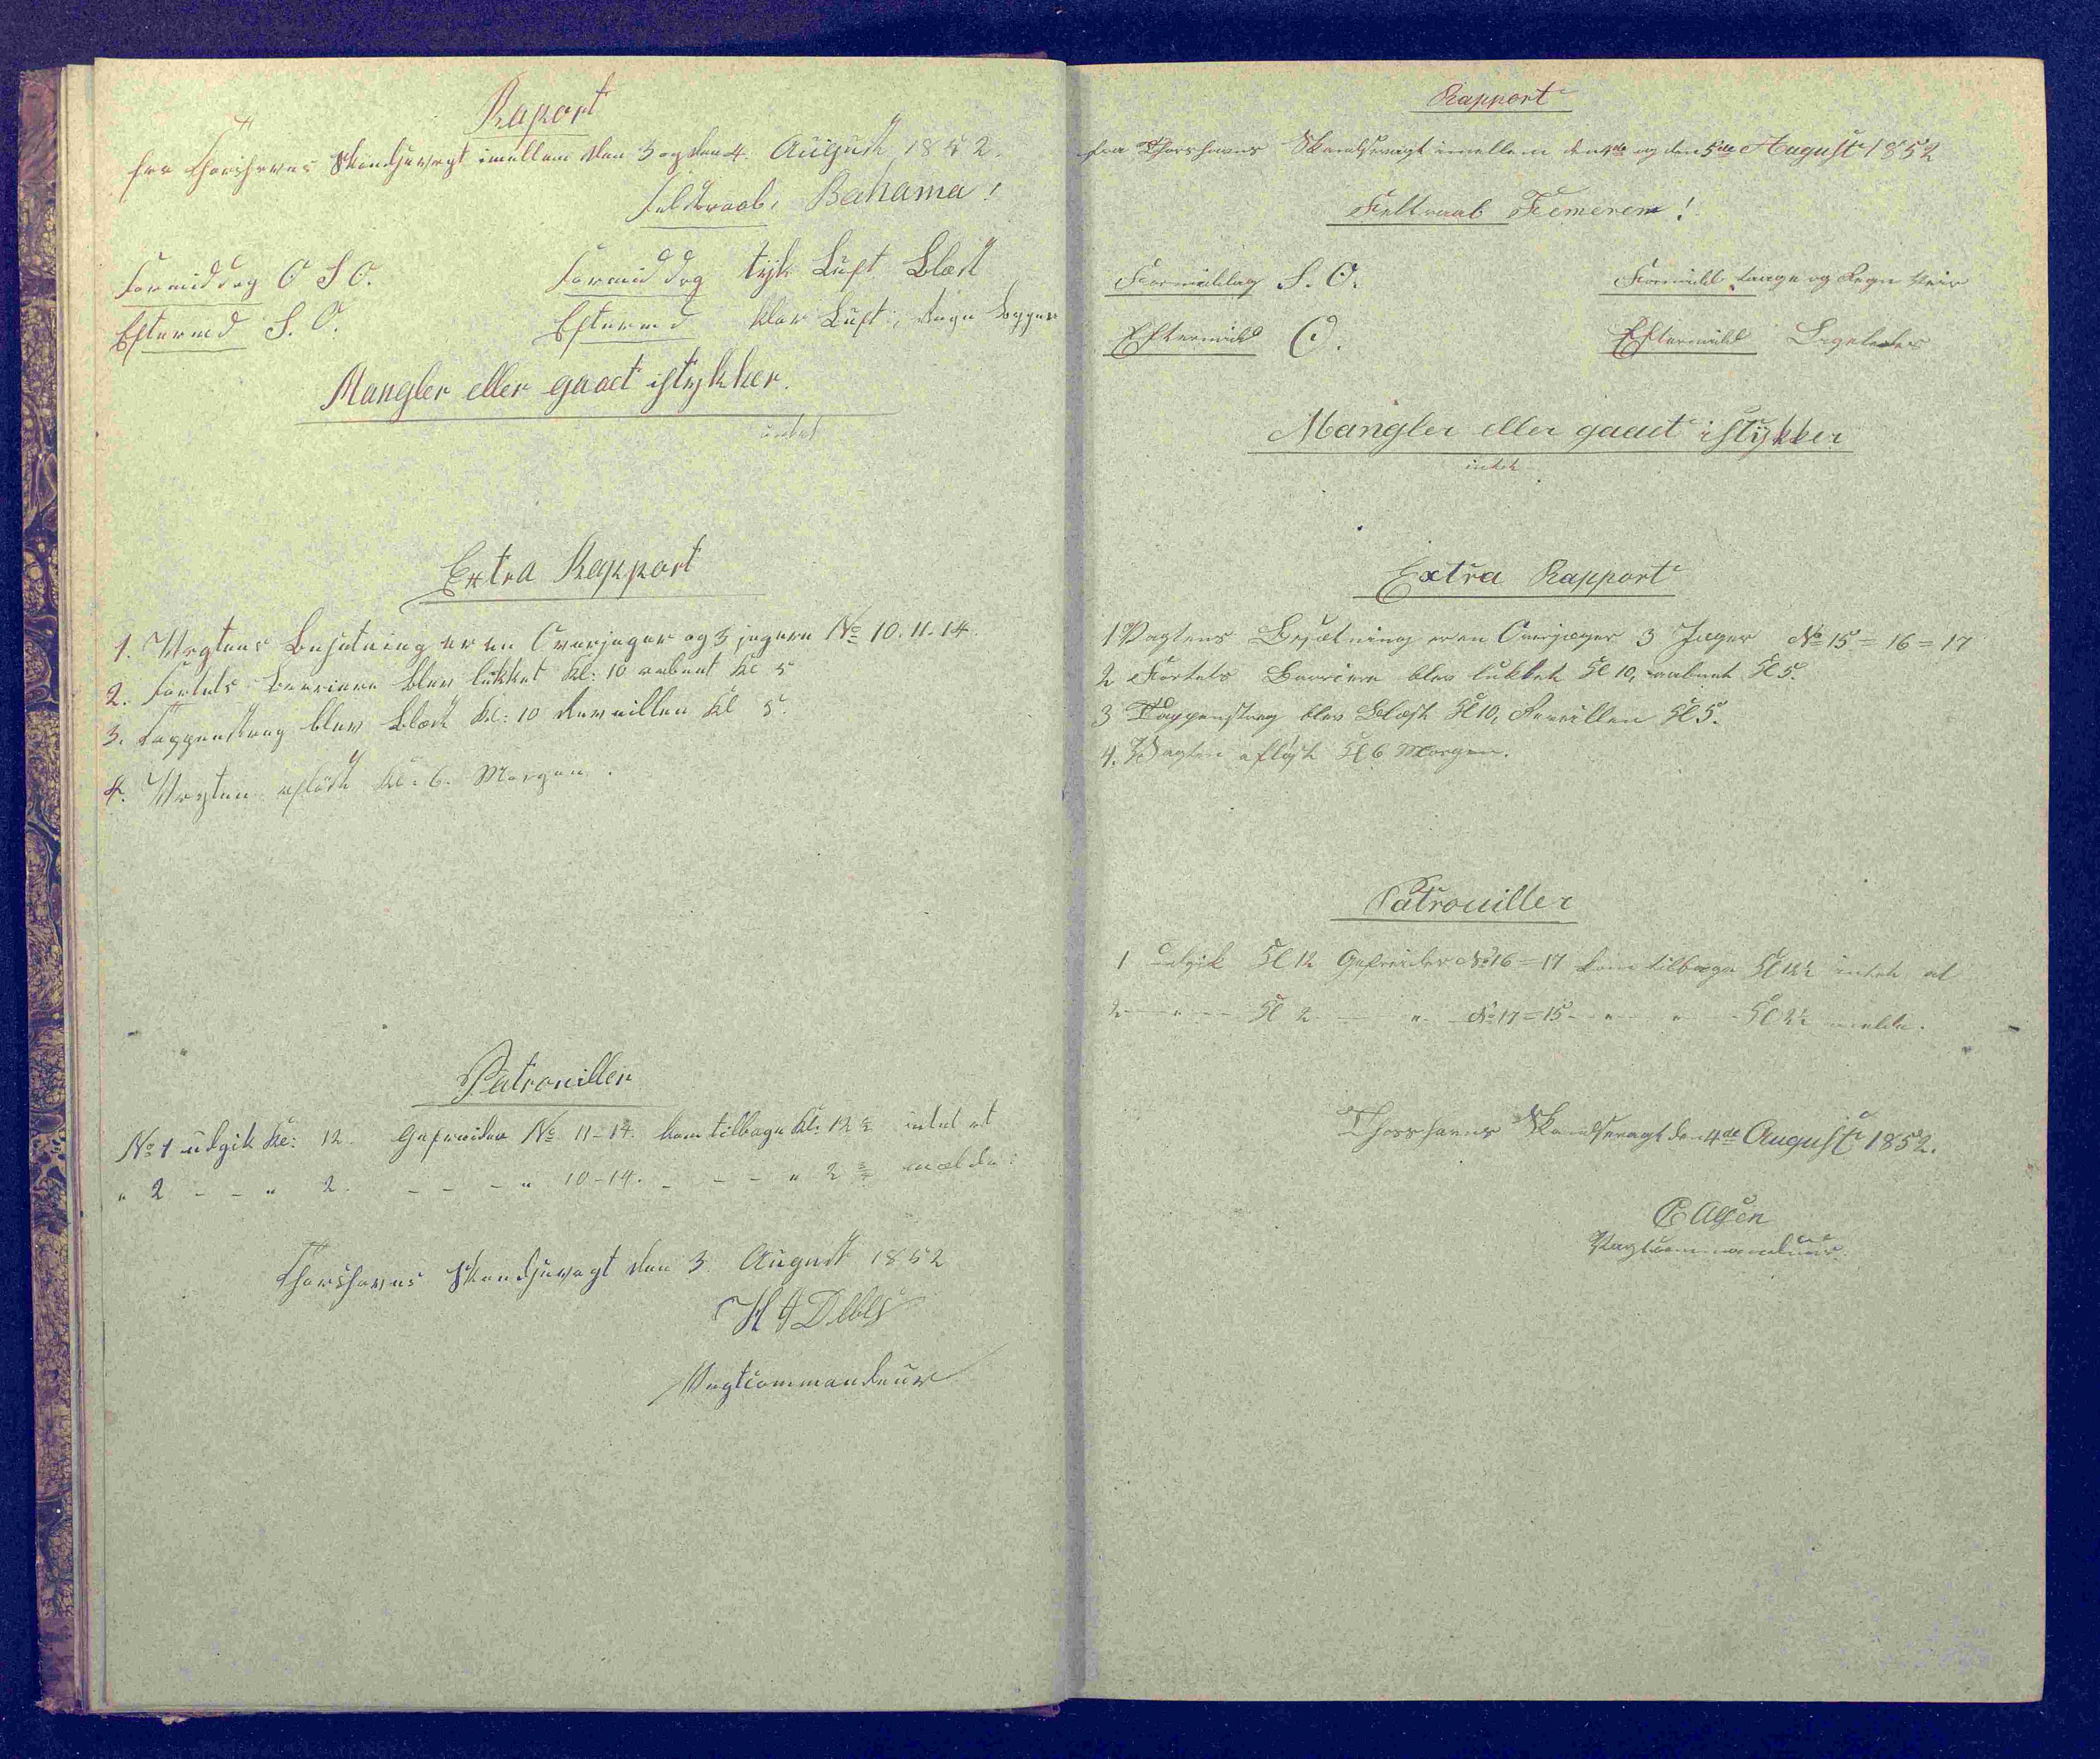 Raport
fra Thorshavns Skandsevagt imellem den 3 og den 4. August 1852.
Feldtraab, Bahama!
Formiddag O S O. Formiddag tyk Luft Blæst
Eftermd S. O. Eftermd klar Luft,
Mangler eller gaaet istykker.
intet
Extra Rapport
1. Vagtens Besætning er en Overjæger og 3 jægere No 10. 11. 14.
2. Fortets Barriere blev lukket Kl: 10 aabnet Kl 5
3. Tappenstreg blev Blæst Kl: 10 Reveillen Kl 5.
4. Vagten afløst Kl. 6. Morgen.
Patrouiller
No 1 udgik Kl: 12. Gefreider No 11-14. kom tilbage Kl: 12 ½ intet at
" 2 - - " 2. - - - " 10-14. - - - " 2 ½ melde:
Thorshavns Skandsevagt den 3 August 1852
H J Debes
Vagtcommandeur
Rapport
fra Thorshavns Skandsevagt imellem den 4de og den 5te August 1852
Feltraab Femeren!
Formiddag S. O. Formidd Taage og Regn Veir
Eftermidd O. Eftermidd Ligeledes
Mangler eller gaaet istykker
intet
Extra Rapport
1 Vagtens Besætning er en Overjæger 3 Jæger No 15 = 16 = 17
2 Fortets Barriere blev lukket Kl 10, aabnet Kl 5.
3 Tappenstreg blev Blæst Kl 10, Reveillen Kl 5.
4. Vagten afløst Kl 6 Morgen.
Patrouiller
1 udgik Kl 12 Gefreider No 16 = 17 kom tilbage Kl 12½ intet at
2 - " - Kl 2 - " - No 17 = 15 - " - " - Kl 2½ melde.
Thorshavns Skandsevagt den 4de August 1852.
Vagtcommandeur.